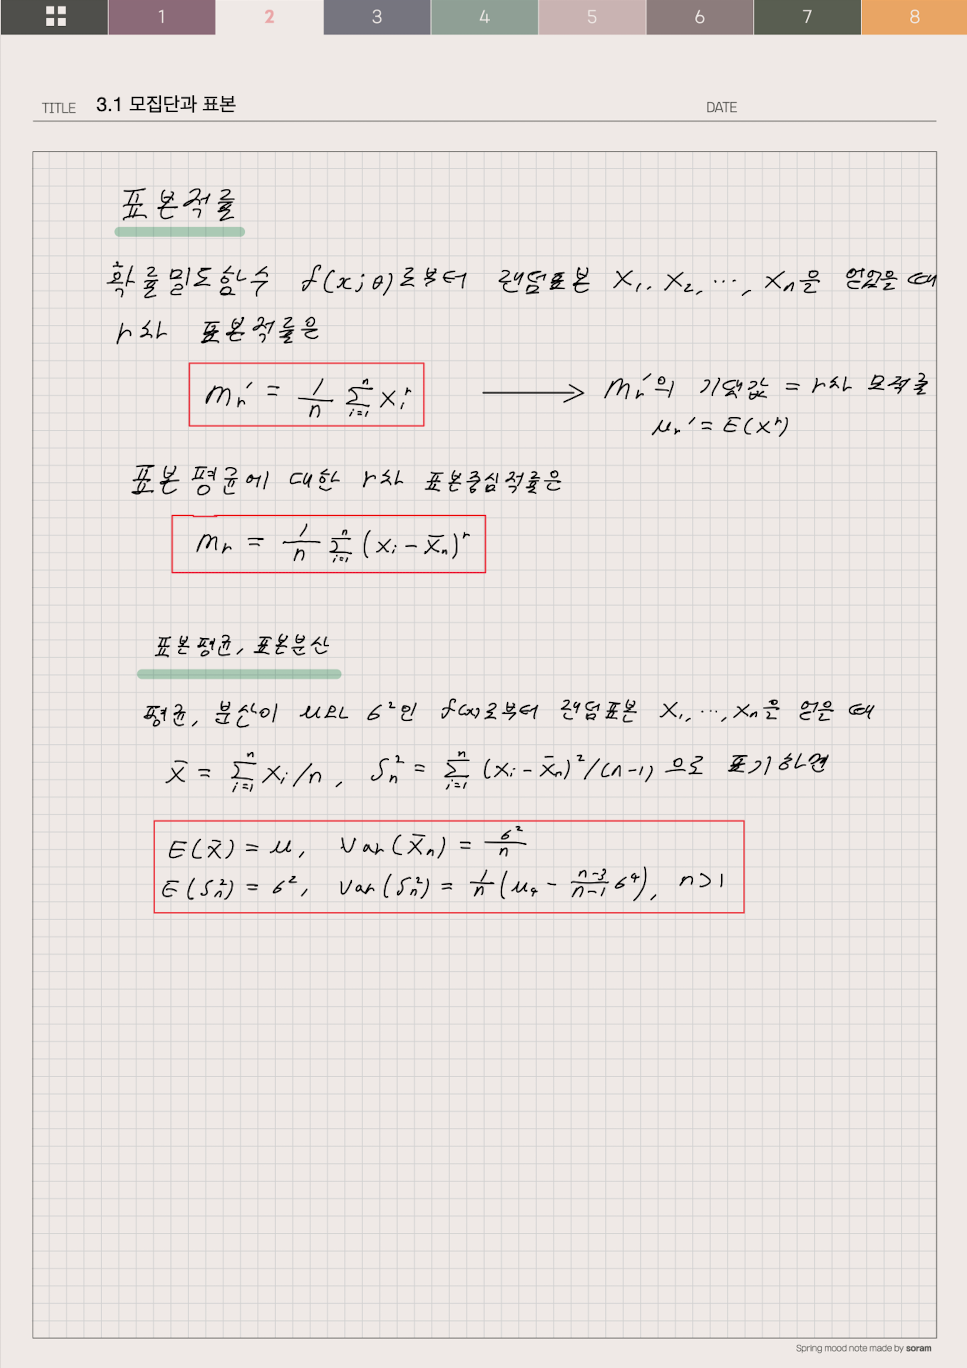 1 2 3 4 5 6 7 8
TITLE 3.1 모집단과 표본 DATE
표본적률
확률밀도함수 f(x;θ)로부터 랜덤표본 X₁, X₂, ⋯, Xₙ을 얻었을 때
r차 표본적률은
mᵣ′ = 1/n Σᵢ₌₁ⁿ Xᵢʳ → mᵣ′의 기댓값 = r차 모적률
μᵣ′ = E(Xʳ)
표본평균에 대한 r차 표본중심적률은
mᵣ = 1/n Σᵢ₌₁ⁿ (Xᵢ - X̄ₙ)ʳ
표본평균, 표본분산
평균, 분산이 μ와 σ²인 f(x)로부터 랜덤표본 X₁, ⋯, Xₙ을 얻은 때
X̄ = Σᵢ₌₁ⁿ Xᵢ/n, Sₙ² = Σᵢ₌₁ⁿ (Xᵢ - X̄ₙ)²/(n-1) 으로 표기하면
E(X̄) = μ, Var(X̄ₙ) = σ²/n
E(Sₙ²) = σ², Var(Sₙ²) = 1/n (μ₄ - (n-3)/(n-1) σ⁴), n>1
Spring mood note made by soram